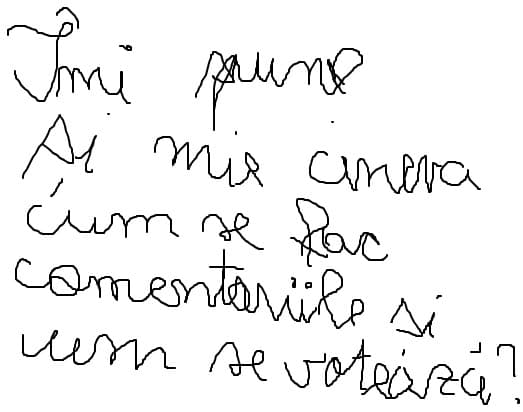 Îmi pune
Ai mie cineva
cum se fac
comentariile si
cum se votează?